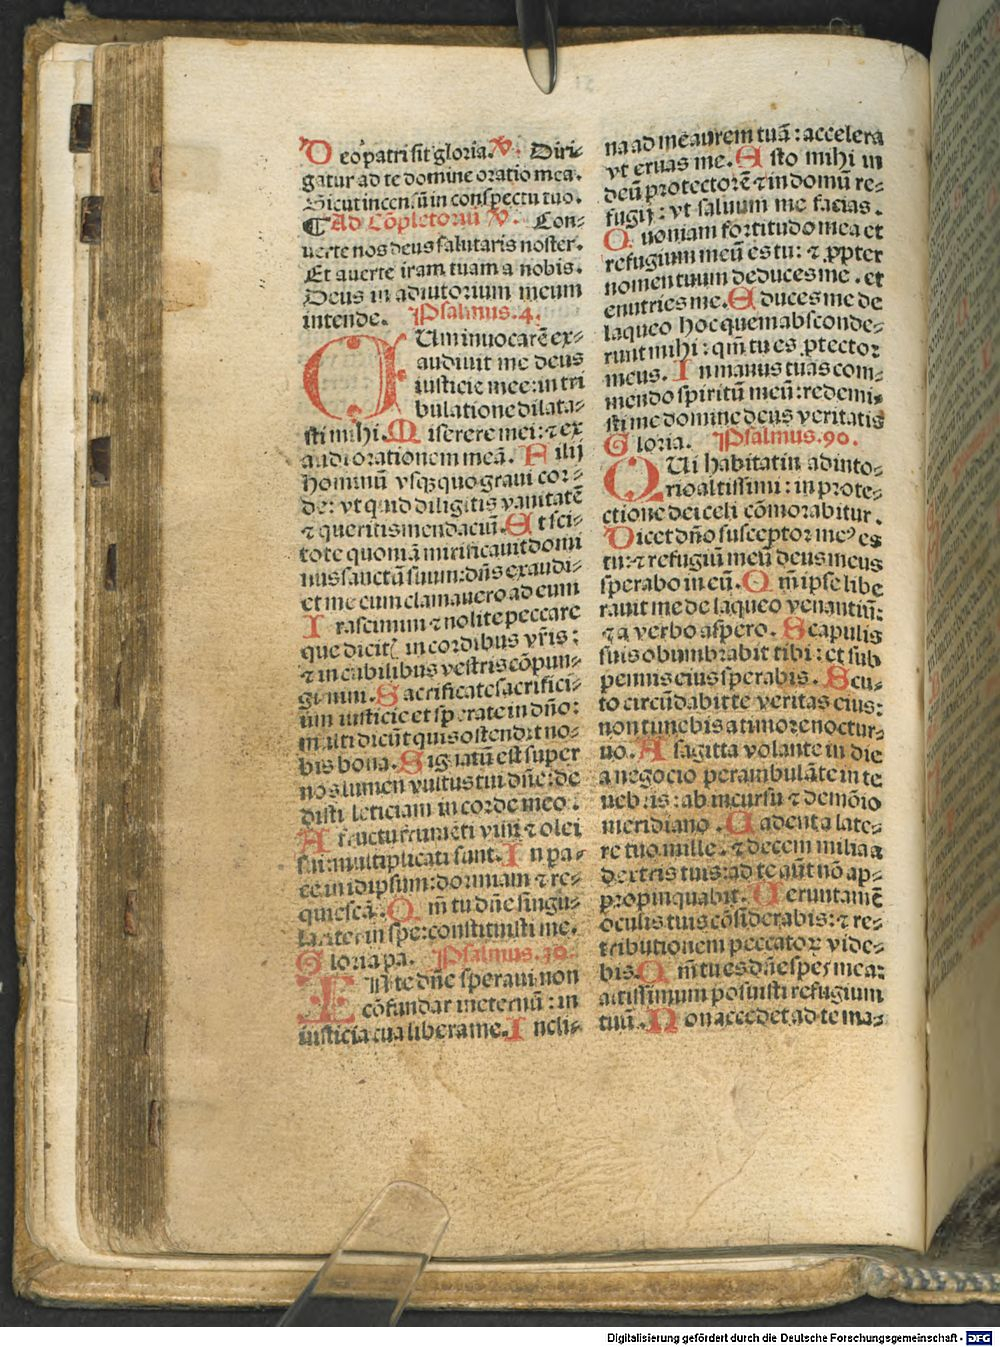 Deo patri sit gloria. V. Diri-
gatur ad te domine oratio mea.
Sicut incensū in conspectu tuo.
¶ Ad Cōpletoriū V. Con-
uerte nos deus salutaris noster.
Et auerte iram tuam a nobis.
Deus in adiutorium meum
intende. Psalmus .4.
CUm inuocarē ex-
audiuit me deus
iusticie mee: in tri
bulatione dilata-
sti mihi. Miserere mei: ⁊ ex
audi orationem meā. Filij
hominū vsqꝫ quo graui cor-
de: vt quid diligitis vanitatē
⁊ queritis mendaciū. Et sci-
tote quoniā mirificauit domi
nus sanctū suum: dn̄s exaudi-
et me cum clamauero ad eum
Irascimini ⁊ nolite peccare
que dicit᷑ in cordibus vr̄is:
⁊ in cubilibus vestris cōpun-
gimini. Sacrificate sacrifici-
um iusticie et sperate in dn̄o:
multi dicūt quis ostendit no-
bis bona. Signatū est super
nos lumen vultus tui dn̄e: de
disti leticiam in corde meo.
A fructu frumēti vini ⁊ olei
sui: multiplicati sunt. In pa-
ce in idipsum: dormiam ⁊ re-
quiescā. Qm̄ tu dn̄e singu-
lariter in spe: constituisti me.
Gloria pa. Psalmus .30.
IN te dn̄e speraui non
cōfundar in eternū: in
iusticia tua libera me. Incli-
na ad me aurem tuā: accelera
vt eruas me. Esto mihi in
deū protectorē ⁊ in domū re-
fugij: vt saluum me facias.
Quoniam fortitudo mea et
refugium meū es tu: ⁊ ꝓpter
nomen tuum deduces me. et
enutries me. Educes me de
laqueo hoc quem absconde-
runt mihi: qm̄ tu es ꝓtector
meus. In manus tuas com-
mendo spiritū meū: redemi-
sti me domine deus veritatis
Gloria. Psalmus .90.
QUi habitat in adiuto-
rio altissimi: in prote-
ctione dei celi cōmorabitur.
Dicet dn̄o susceptor meꝰ es
tu: ⁊ refugiū meū deus meus
sperabo in eū. Qm̄ ipse libe
rauit me de laqueo venantiū:
⁊ a verbo aspero. Scapulis
suis obumbrabit tibi: et sub
pennis eius sperabis. Scu-
to circūdabit te veritas eius:
non timebis a timore noctur-
no. A sagitta volante in die
a negocio perambulāte in te
nebris: ab incursu ⁊ demōio
meridiano. Cadent a late-
re tuo mille. ⁊ decem milia a
dextris tuis: ad te aūt nō ap-
propinquabit. Veruntamē
oculis tuis cōsiderabis: ⁊ re-
tributionem peccatoꝝ vide-
bis. Qm̄ tu es dn̄e spes mea:
altissimum posuisti refugium
tuū. Non accedet ad te ma-
Digitalisierung gefördert durch die Deutsche Forschungsgemeinschaft - DFG